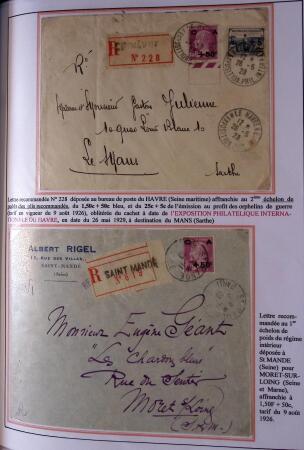 Ré
N° 228
Gaston Julienne
10 quai
Le Mans
Sarthe
Lettre recommandée N° 228 déposée au bureau de poste du HAVRE (Seine maritime) affranchie au 2ème échelon de
poids des plis recommandés, du 1,50c + 50c bleu, et du 25c + 5c de l'émission au profit des orphelins de guerre
(tarif en vigueur du 9 août 1926), oblitérée du cachet à date de l'EXPOSITION PHILATELIQUE INTERNA-
TIONALE DU HAVRE, en date du 26 mai 1929, à destination du MANS (Sarthe)
ALBERT RIGEL
RUE DES VILLAS
SAINT-MANDÉ
(Seine)
SAINT MANDÉ
Monsieur Eugène Géant
"Les Chardons bleus"
Rue du Sentier
Moret s/Loing
(S. & M.)
Lettre recom-
mandée au 1er
échelon de
poids du régime
intérieur
déposée à
St MANDE
(Seine) pour
MORET-SUR-
LOING (Seine
et Marne),
affranchie à
1,50F + 50c,
tarif du 9 août
1926.